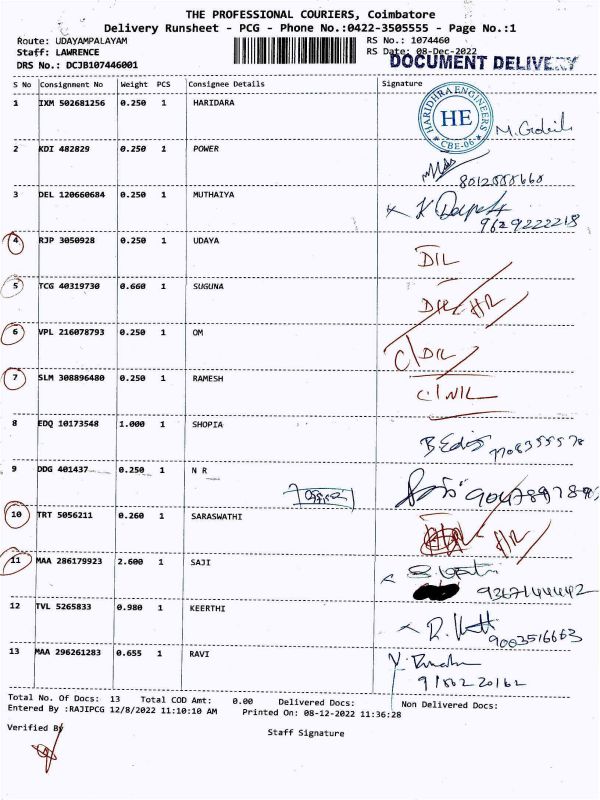 THE PROFESSIONAL COURIERS, Coimbatore
Delivery Runsheet - PCG - Phone No.:0422-3505555 - Page No.:1
Route: UDAYAMPALAYAM
RS No.: 1074460
Staff: LAWRENCE
RS Date: 08-Dec-2022
DRS No.: DCJB107446001
DOCUMENT DELIVERY
S No Consignment No Weight PCS Consignee Details Signature
1 IXM 502681256 0.250 1 HARIDARA
HARIDHRA ENGINEERS
HE
CBE-06
2 KDI 482829 0.250 1 POWER
3 DEL 120660684 0.250 1 MUTHAIYA
9629222218
4 RJP 3050928 0.250 1 UDAYA
DIL
5 TCG 40319730 0.660 1 SUGUNA
6 VPL 216078793 0.250 1 OM
C/DIL
7 SLM 308896480 0.250 1 RAMESH
8 EDQ 10173548 1.000 1 SHOPIA
9 DDG 401437 0.250 1 N R
10 TRT 5056211 0.260 1 SARASWATHI
HR
11 MAA 286179923 2.600 1 SAJI
9367144442
12 TVL 5265833 0.980 1 KEERTHI
9003516663
13 MAA 296261283 0.655 1 RAVI
Total No. Of Docs: 13 Total COD Amt: 0.00 Delivered Docs: Non Delivered Docs:
Entered By :RAJIPCG 12/8/2022 11:10:10 AM Printed On: 08-12-2022 11:36:28
Verified By
Staff Signature